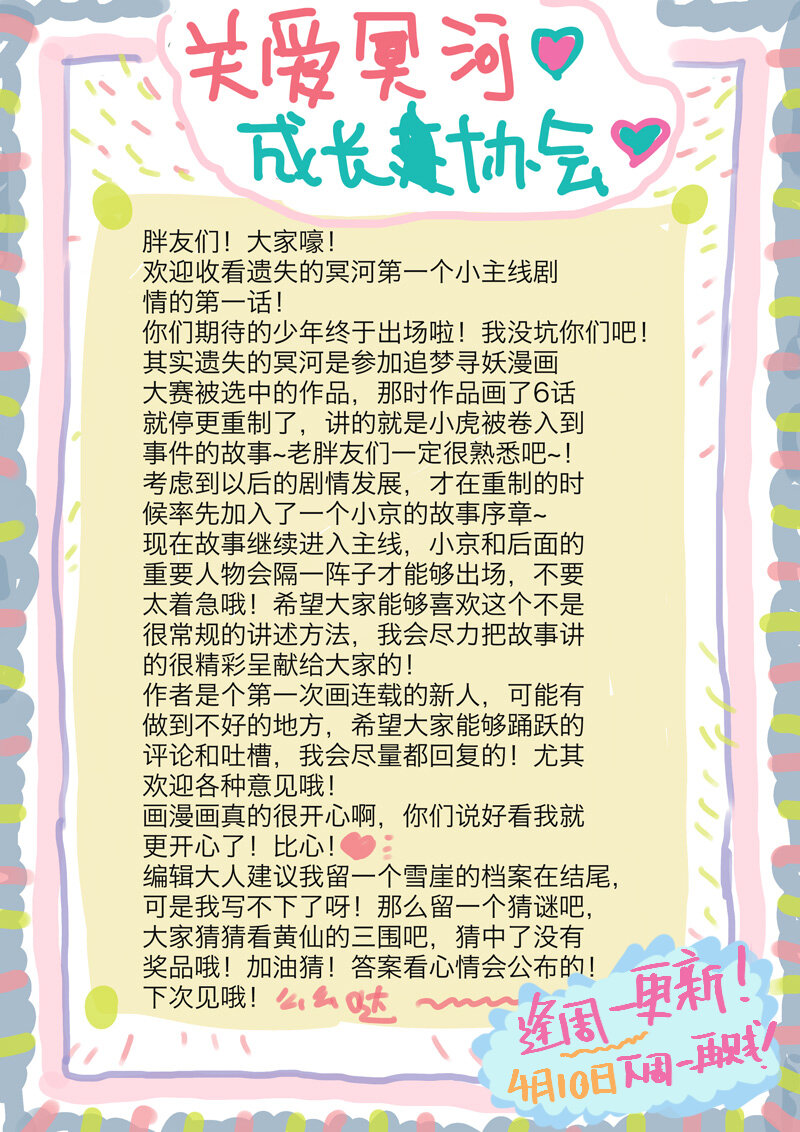 关爱冥河
成长协会
胖友们！大家嚎！
欢迎收看遗失的冥河第一个小主线剧
情的第一话！
你们期待的少年终于出场啦！我没坑你们吧！
其实遗失的冥河是参加追梦寻妖漫画
大赛被选中的作品，那时作品画了6话
就停更重制了，讲的就是小虎被卷入到
事件的故事~老胖友们一定很熟悉吧~！
考虑到以后的剧情发展，才在重制的时
候率先加入了一个小京的故事序章~
现在故事继续进入主线，小京和后面的
重要人物会隔一阵子才能够出场，不要
太着急哦！希望大家能够喜欢这个不是
很常规的讲述方法，我会尽力把故事讲
的很精彩呈献给大家的！
作者是个第一次画连载的新人，可能有
做到不好的地方，希望大家能够踊跃的
评论和吐槽，我会尽量都回复的！尤其
欢迎各种意见哦！
画漫画真的很开心啊，你们说好看我就
更开心了！比心！
编辑大人建议我留一个雪崖的档案在结尾，
可是我写不下了呀！那么留一个猜谜吧，
大家猜猜看黄仙的三围吧，猜中了没有
奖品哦！加油猜！答案看心情会公布的！
下次见哦！么么哒
逢周一更新！
4月10日下周一再战！